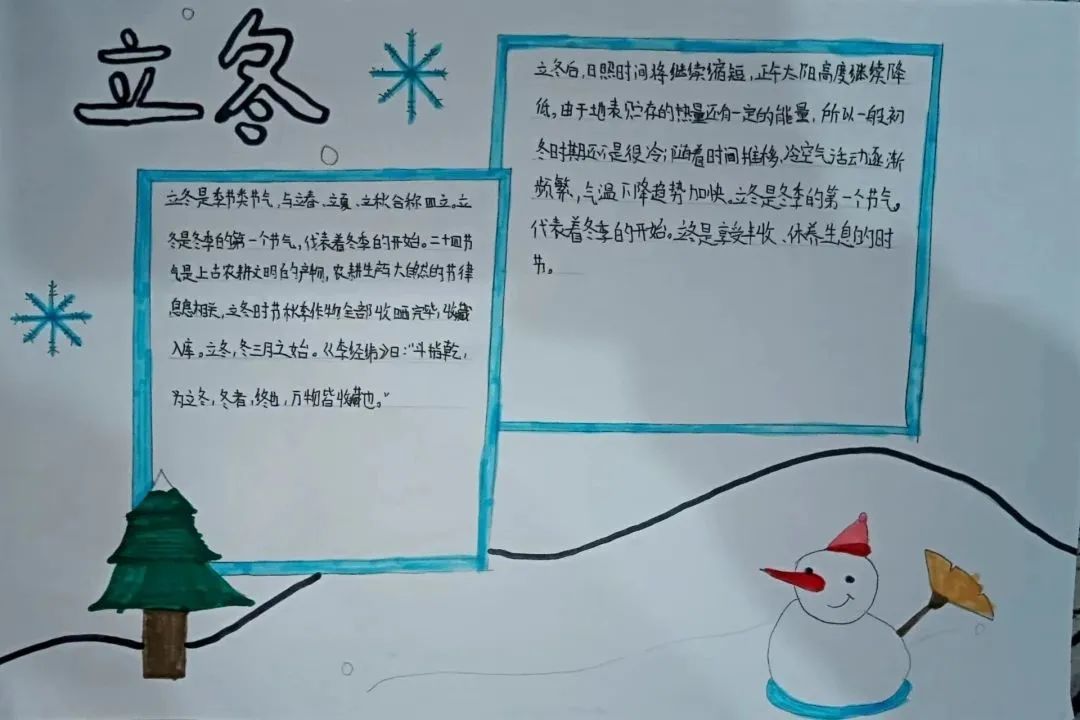 立冬
立冬是季节类节气，与立春、立夏、立秋合称四立。立
冬是冬季的第一个节气，代表着冬季的开始。二十四节
气是上古农耕文明的产物，农耕生产大自然的节律
息息相关，立冬时节秋季作物全部收晒完毕，收藏
入库。立冬，冬三月之始。《孝经纬》曰：“斗指乾，
为立冬，冬者，终也，万物皆收藏也。”
立冬后，日照时间将继续缩短，正午太阳高度继续降
低。由于地表贮存的热量还有一定的能量，所以一般初
冬时期还不是很冷；随着时间推移，冷空气活动逐渐
频繁，气温下降趋势加快。立冬是冬季的第一个节气。
代表着冬季的开始。冬是享受丰收、休养生息的的时
节。